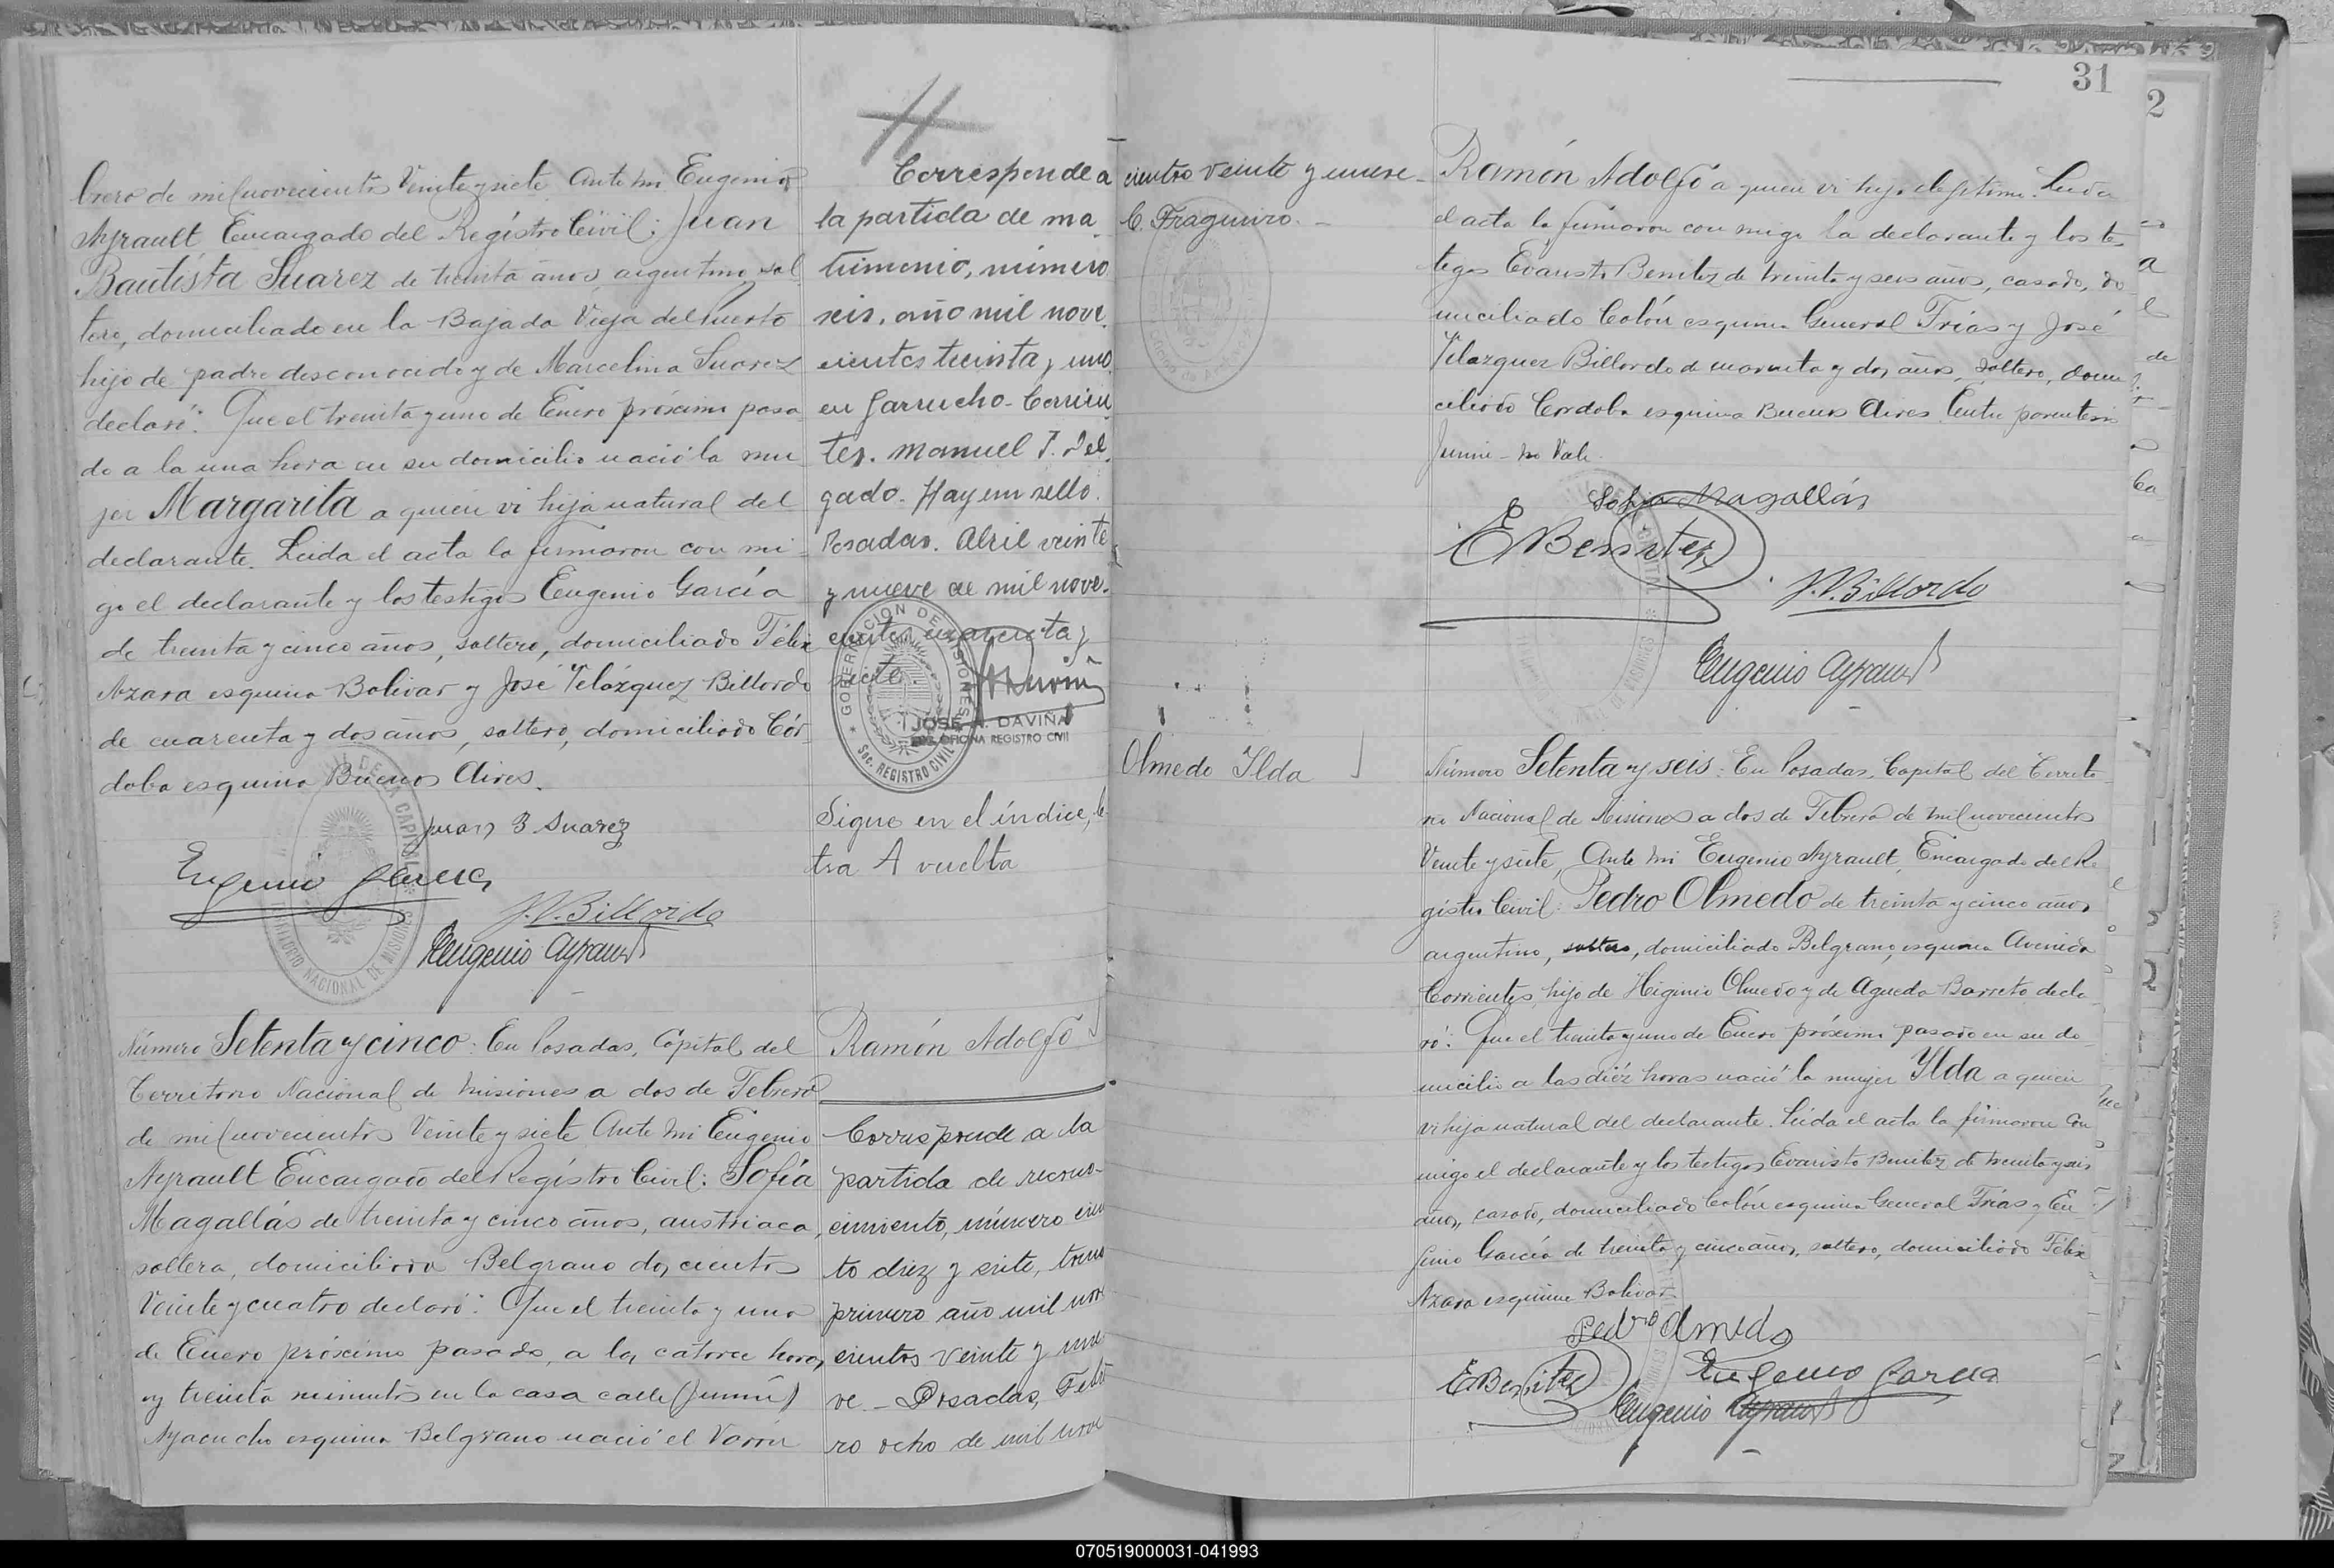 brero de mil novecientos Veinte y siete. Ante mi Eugenio
Ayrault Encargado del Registro Civil: Juan
Bautista Suarez de treinta años, argentino, sol
tero, domiciliado en la Bajada Vieja del Puerto
hijo de padre desconocido y de Marcelina Suarez
declaró: Que el treinta y uno de Enero próximo pasa
do a la una hora en su domicilio nació la mu
jer Margarita a quien vi hija natural del
declarante. Leida el acta la firmaron con mi
go el declarante y los testigos Eugenio García
de treinta y cinco años, soltero, domiciliado Félix
Azara esquina Bolivar y José Velázquez Billordo
de cuarenta y dos años, soltero, domiciliado Cór
doba esquina Buenos Aires.
Juan B Suarez
Eugenio Garcia
J.V. Billordo
Eugenio Ayrault
Número Setenta y cinco: En Posadas, Capital del
Territorio Nacional de Misiones a dos de Febrero
de mil novecientos Veinte y siete Ante Mi Eugenio
Ayrault Encargado del Registro Civil: Sofía
Magallás de treinta y cinco años, austriaca,
soltera, domiciliada Belgrano dos cientos
Veinte y cuatro declaró: Que el treinta y uno
de Enero próximo pasado, a las catorce horas
y treinta minutos en la casa calle (Junin)
Ayacucho esquina Belgrano nació el Varón
Corresponde a
la partida de ma
trimonio, número
seis, año mil nove
cientos treinta y uno
en Garrucho-Corrien
tes. Manuel J. Del
gado. Hay un sello.
Posadas. Abril veinte
y nueve de mil nove.
cientos cuarenta y
siete.
GOBERNACION DE MISIONES
Sec. REGISTRO CIVIL
JOSE A. DAVIÑA
OFICINA REGISTRO CIVIL
Sigue en el índice, le
tra A vuelta
Ramón Adolfo
Corresponde a la
partida de recono-
cimiento, número cien
to diez y siete, tomo
primero año mil nove
cientos veinte y nue
ve - Posadas, Febre
ro ocho de mil nove
31
2
cientos veinte y nueve -
C. Fragueiro. -
Ramón Adolfo a quien vi hijo Lejítimo. Leida
el acta la firmaron con migo la declarante y los tes
tigos Evaristo Benitez de treinta y seis años, casado, do
miciliado Colón esquina General Frías y José
Velazquez Billordo de cuarenta y dos años, soltero, domi
ciliado Cordoba esquina Buenos Aires. Entre parentesis
Junin - no Vale.
Sofia Magallás
E Benitez
J.V. Billordo
Eugenio Ayrault
Olmedo Ylda
Número Setenta y seis: En Posadas, Capital del Territo
rio Nacional de Misiones a dos de Febrero de mil novecientos
Veinte y siete, Ante Mi Eugenio Ayrault, Encargado del Re
gistro Civil: Pedro Olmedo de treinta y cinco años
argentino, soltero, domiciliado Belgrano, esquina Avenida
Corrientes, hijo de Higinio Olmedo y de Agueda Barreto decla
ró: Que el treinta y uno de Enero próximo pasado en su do
micilio a las diéz horas nació la mujer Ylda a quien
vi hija natural del declarante. Leida el acta la firmaron con
migo el declarante y los testigos Evaristo Benitez de treinta y seis
años, casado, domiciliado Colón esquina General Frías y Eu
genio García de treinta y cinco años, soltero, domiciliado Félix
Azara esquina Bolivar
Pedro Olmedo
E Benitez
Eugenio Garcia
Eugenio Ayrault
070519000031-041993